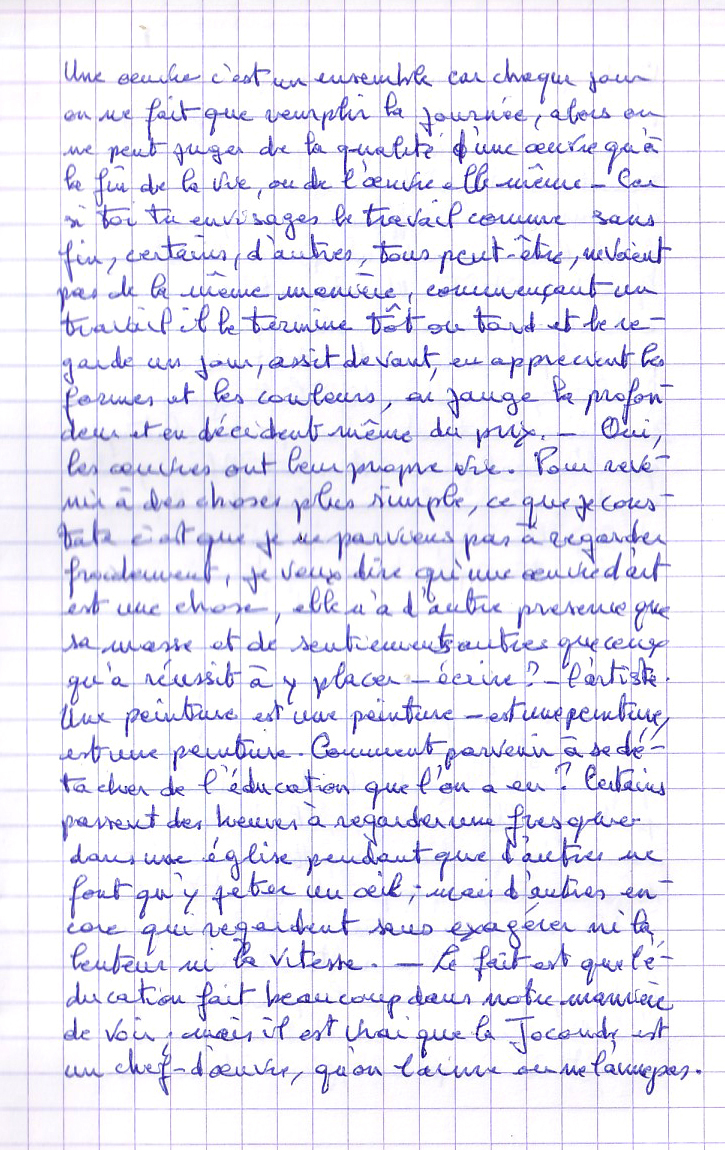 Une oeuvre c'est un ensemble car chaque jour
on ne fait que remplir la journée, alors on
ne peut juger de la qualité d'une oeuvre qu'à
la fin de la vie, ou de l'oeuvre elle même – Car
si toi tu envisages le travail comme sans
fin, certains, d'autres, tous peut-être, ne voient
pas de la même manière, commençant un
travail il le termine tôt ou tard et le re-
garde un jour, assit devant, en apprecient les
formes et les couleurs, en jauge la profon-
deur et en décident même du prix. – Oui,
les oeuvres ont leur propre vie. Pour reve-
nir à des choses plus simple, ce que je cons-
tate c'est que je ne parviens pas à regarder
froidement, je veux dire qu'une oeuvre d'art
est une chose, elle n'a d'autre presence que
sa masse et de sentiements autres que ceux
qu'a réussit à y placer – écrire ? – l'artiste.
Une peinture est une peinture – est une peinture,
est une peinture. Comment parvenir à se dé-
tacher de l'éducation que l'on a eu ? Certains
passent des heures à regarder une fresque
dans une église pendant que d'autres ne
font qu'y jeter un oeil ; mais d'autres en-
core qui regardent sans exagérer ni la
lenteur ni la vitesse. – Le fait est que l'é-
ducation fait beaucoup dans notre manière
de voir ; mais il est vrai que la Joconde est
un chef-d'oeuvre, qu'on l'aime ou ne l'aime pas.